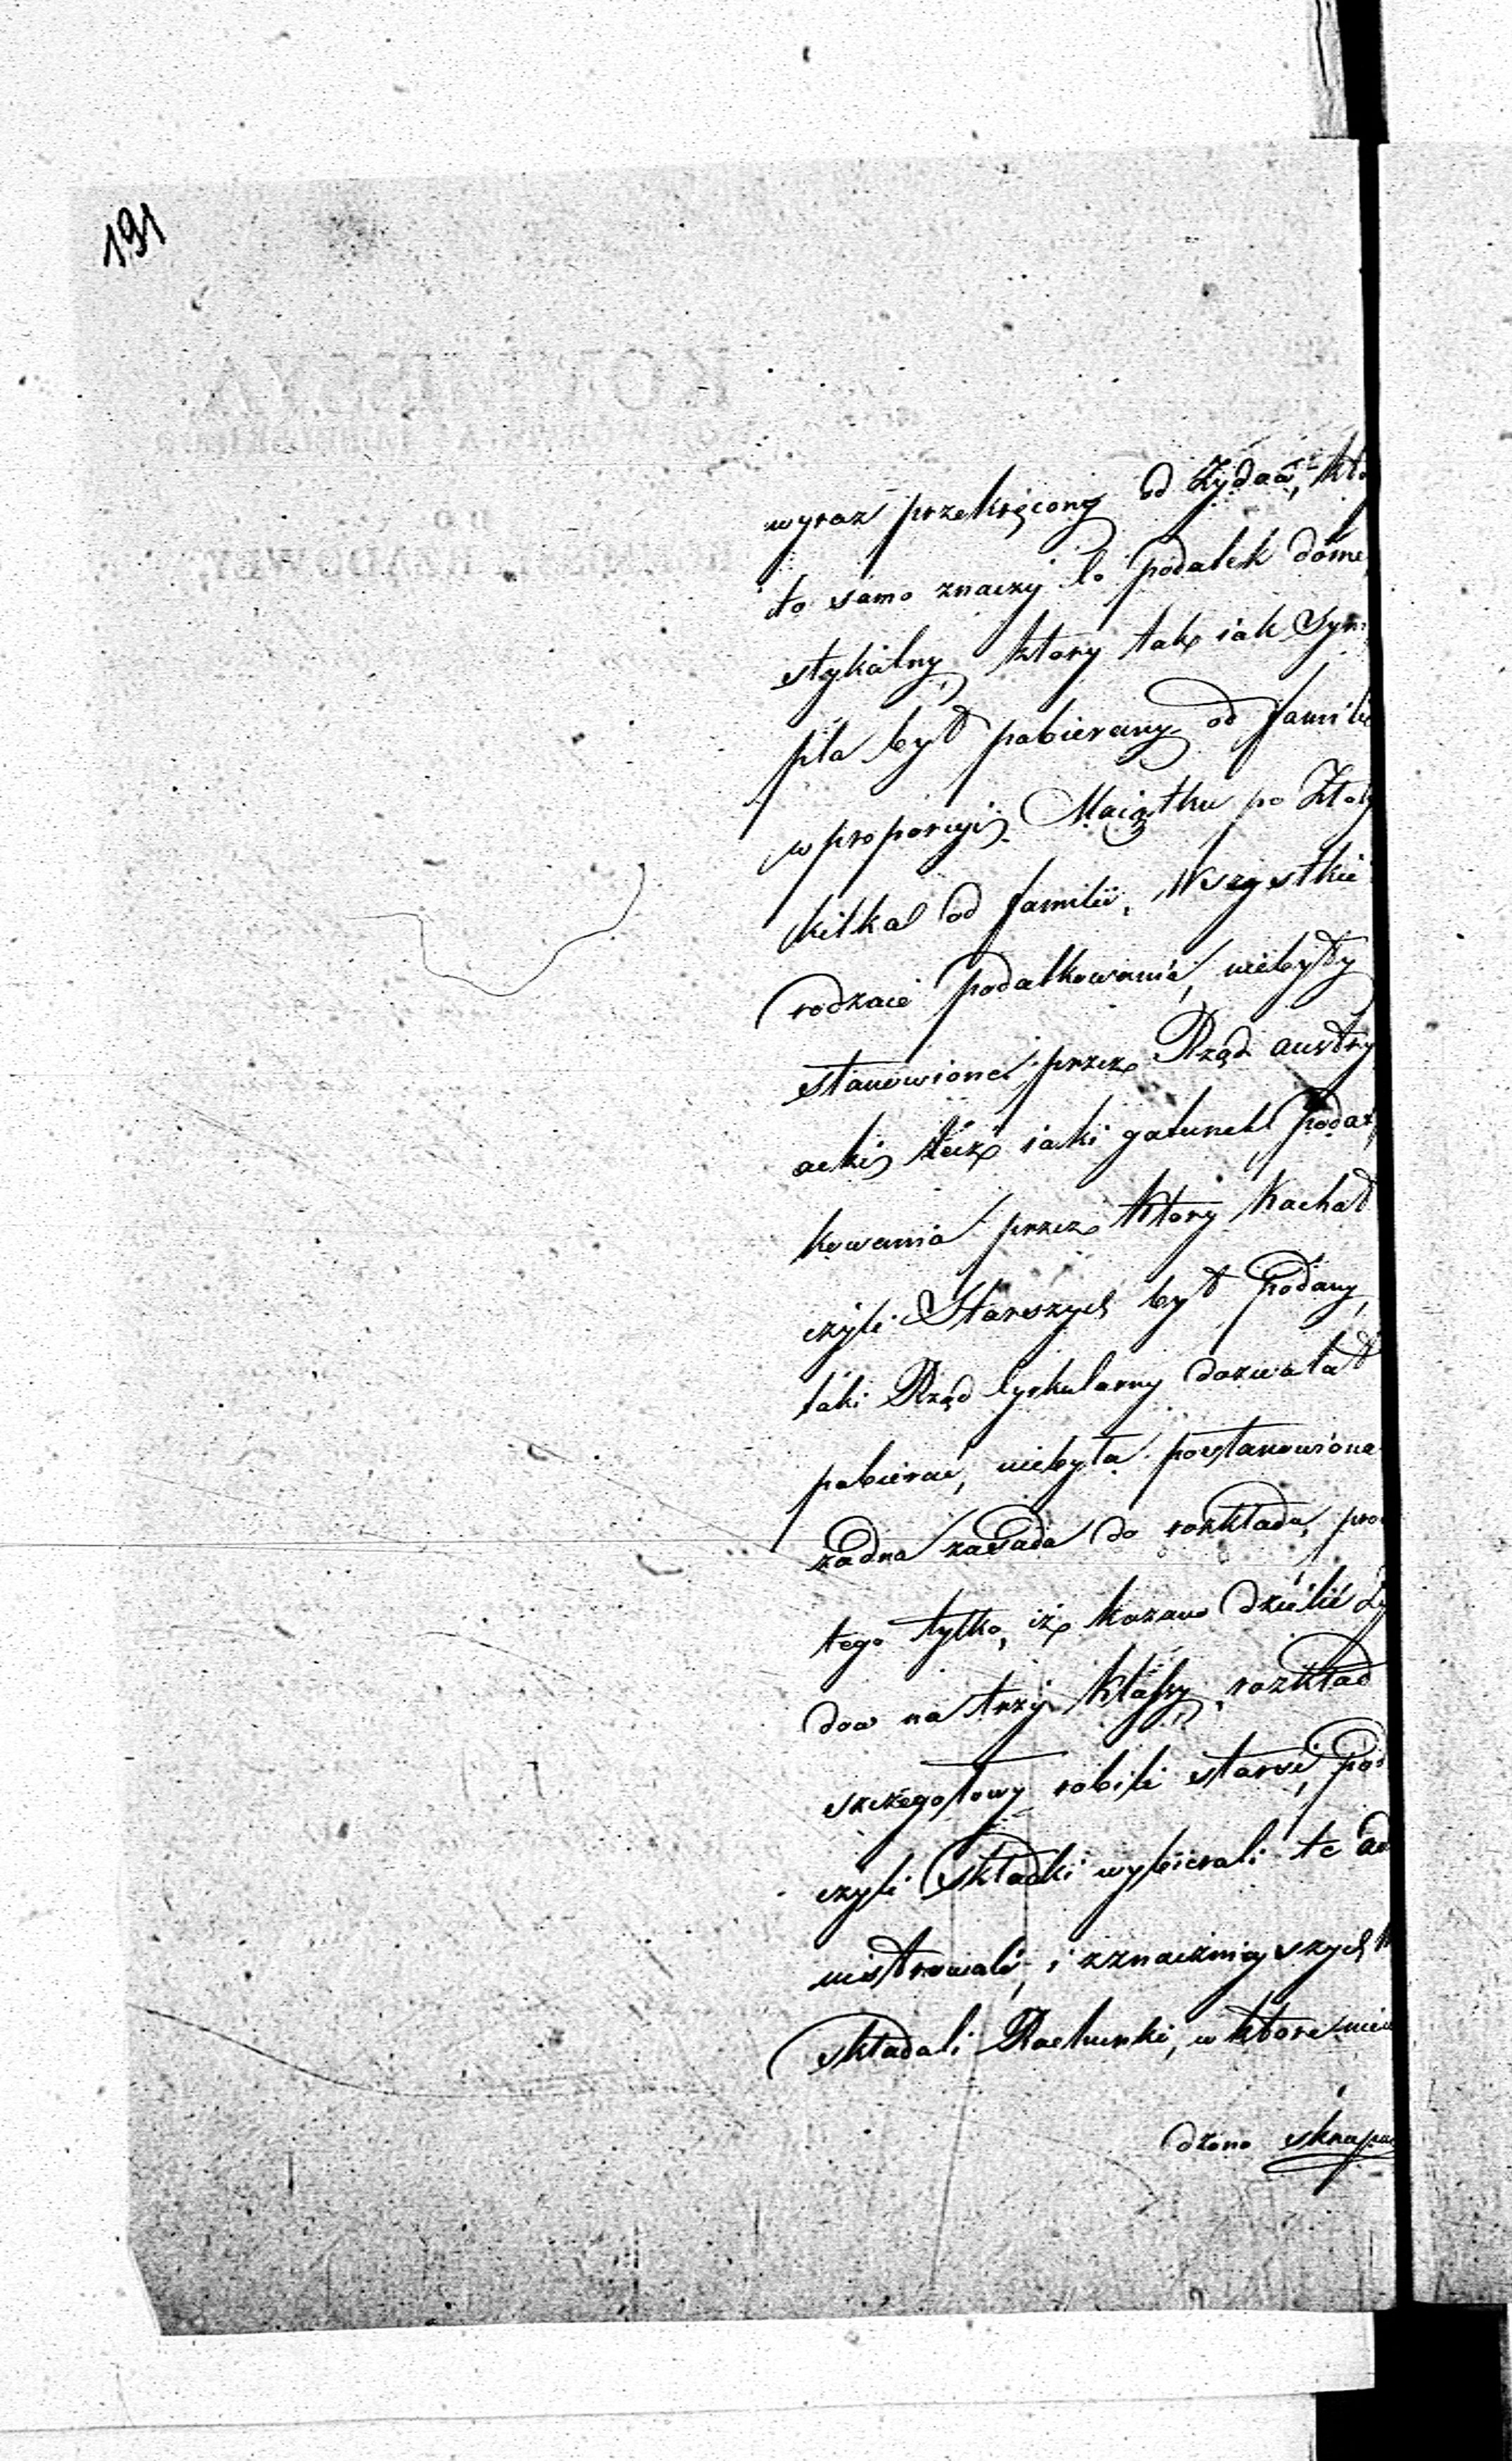 191
wyraz przekręcony od Żydów, kto
to samo znaczy co podatek dome
stykalny, ktory tak iak Sym
pla był pobierany od familii
w proporcyi Maiątku po Złot
kilka od familii, Wszystkie
rodzaie podatkowania, niebyły
stanowione przez Rząd austry
acki, lecz iaki gatunek podat
kowania przez ktory Kachał
czyli Starszych był podany,
taki Rząd Cyrkularny dozwalał
pobierać, niebyła postanowiona
żadna zasada do rozkładu, pro
tego tylko, iż kazano dzielić Ży
dow na trzy klassy, rozkład
szczegołowy robili starsi, pod
czyli składki wybierali te ad
nistrowali, i zznacznieyszych
składali Rachunki, w ktore nie
dzono